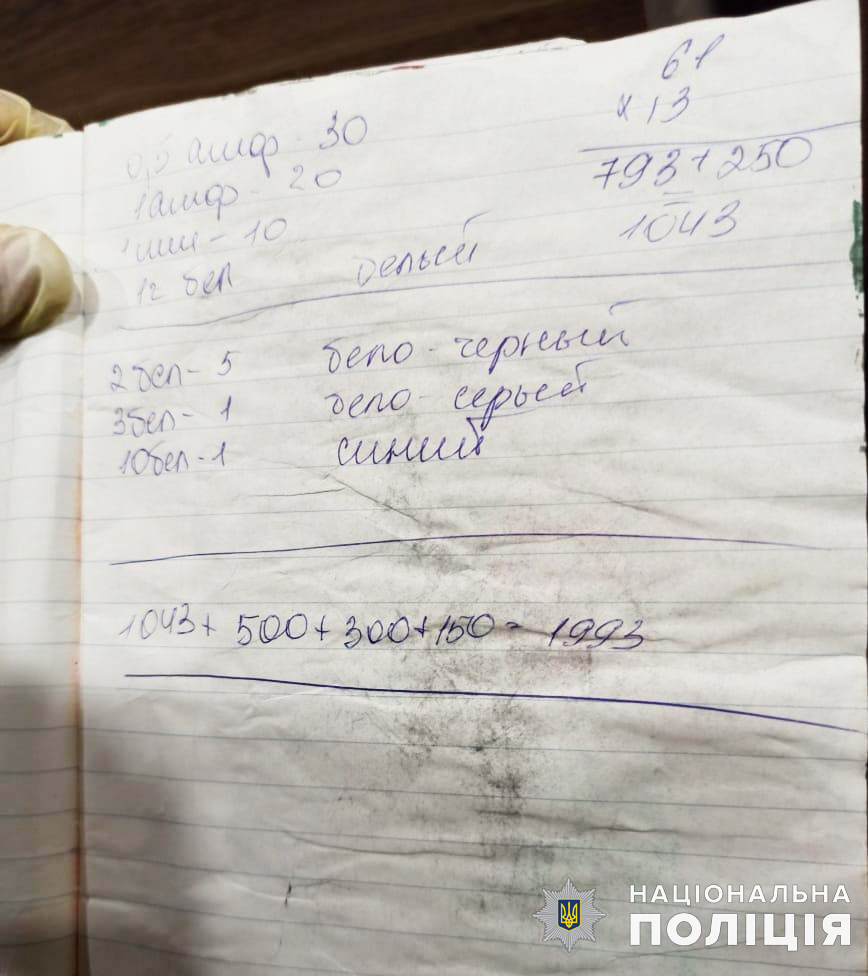 61
0,5 амф - 30
х 13
1 амф - 20
793 + 250
1 мин - 10
1043
1г бел белый
2 бел - 5 бело - черный
3 бел - 1 бело - серый
10 бел - 1 синий
1043 + 500 + 300 + 150 = 1993
НАЦІОНАЛЬНА
ПОЛІЦІЯ